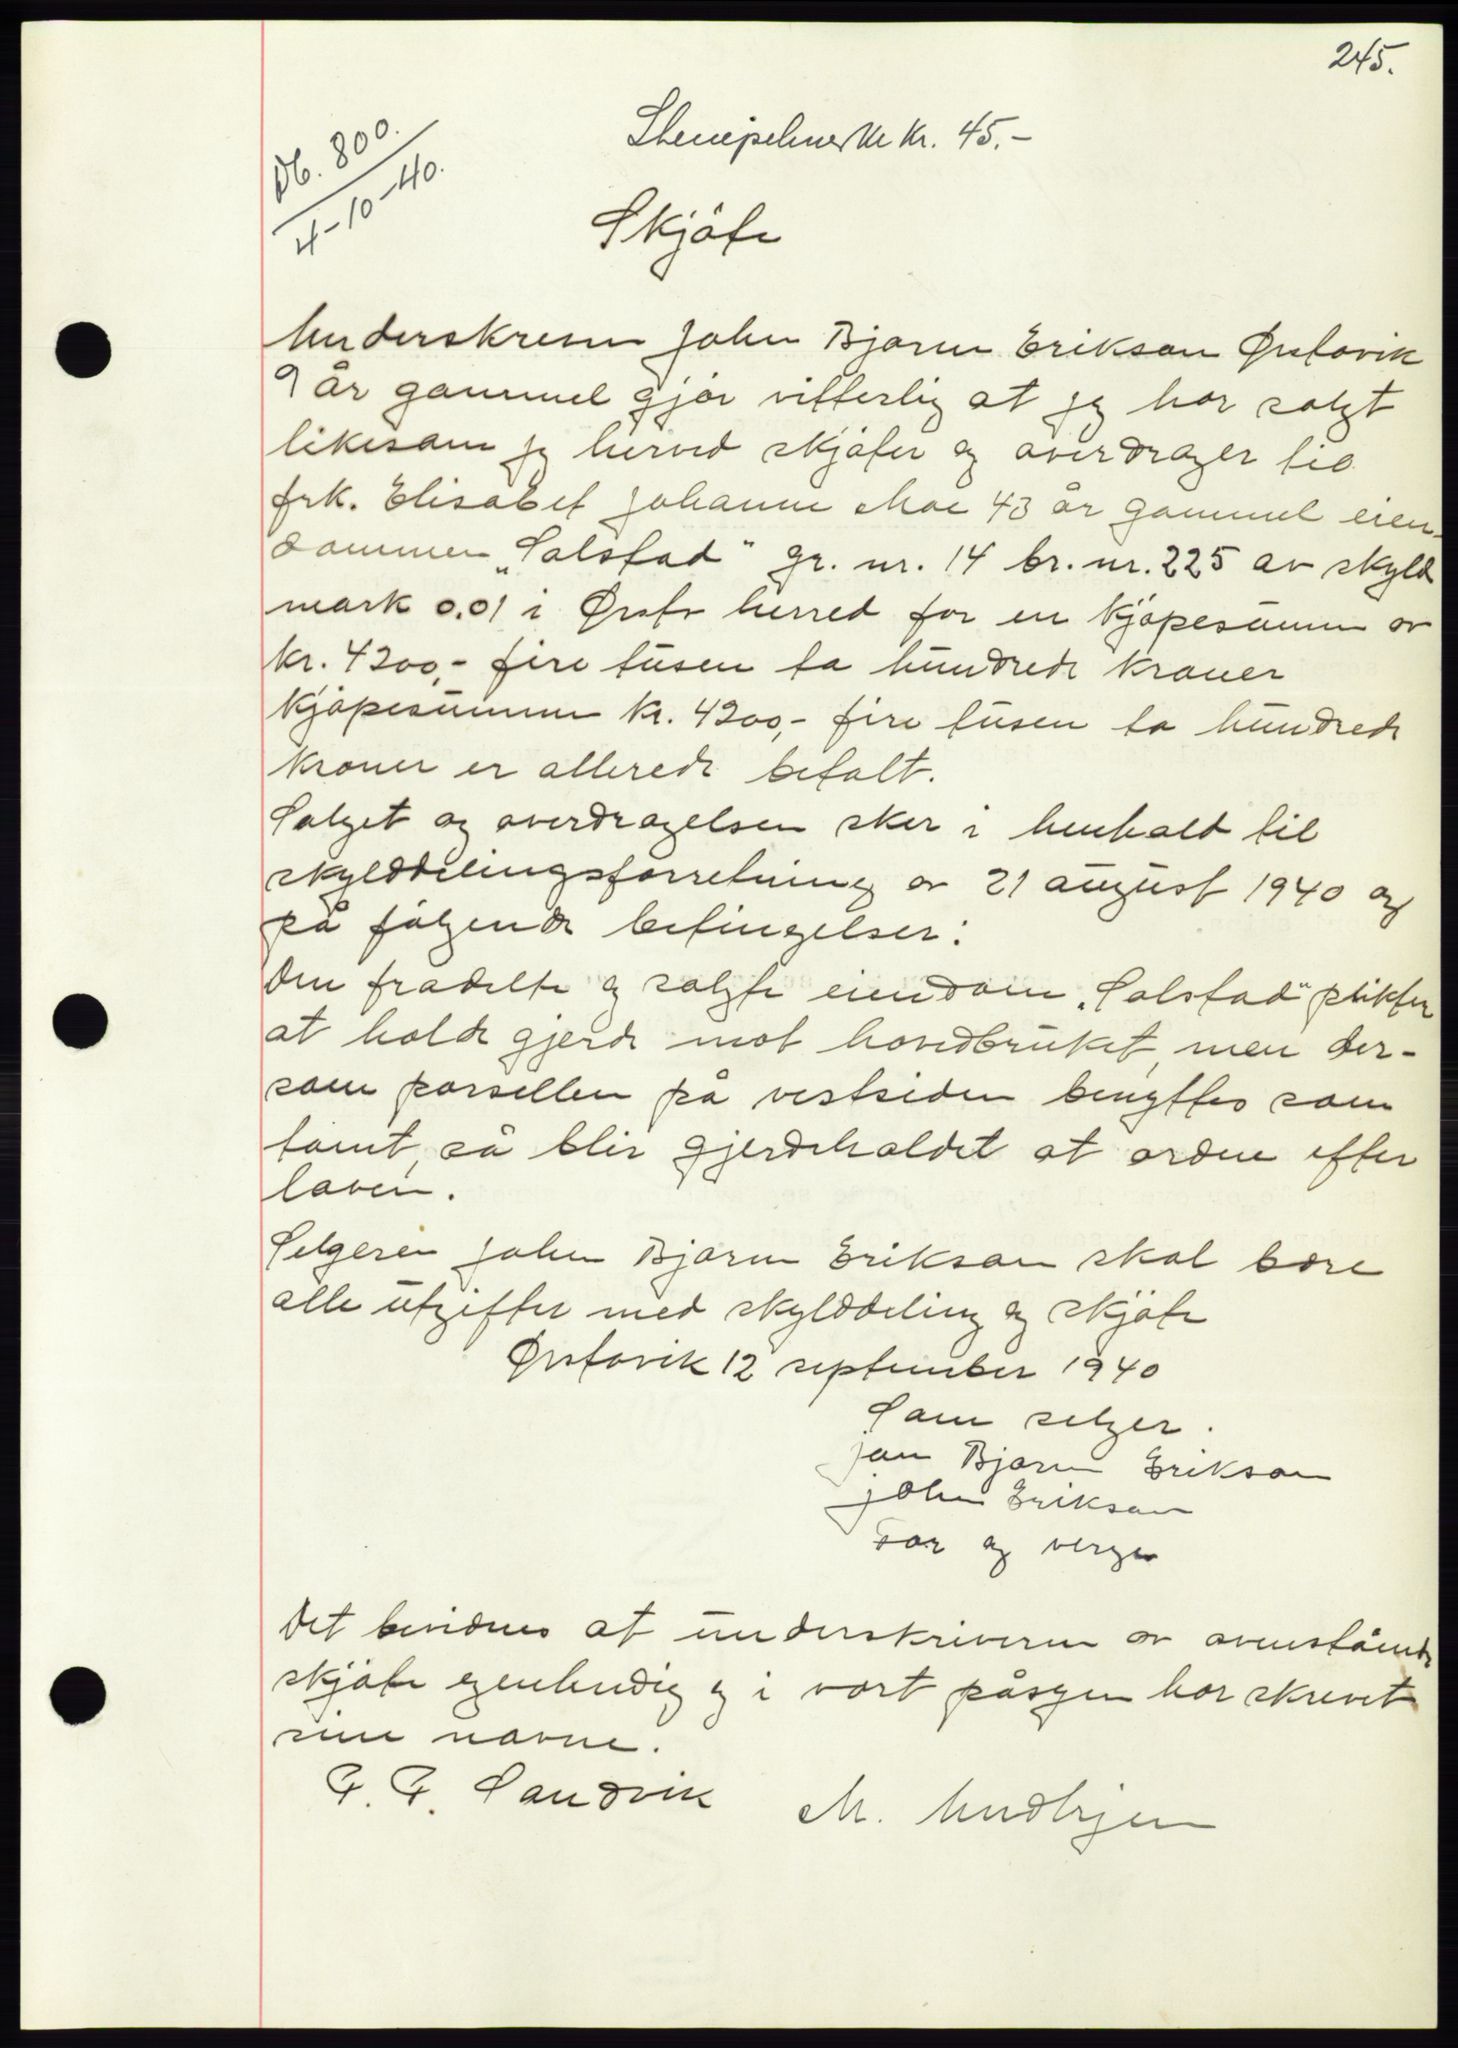 245.
Db. 800.
4-10-40.
Stempelmerke kr. 45.-
Skjöte
Underskreven John Bjarne Erikson Ørstavik
9 år gammel gjör vitterlig at jeg har solgt
likesom jeg herved skjöter og overdrager til
frk. Elisabet Johanne Moe 43 år gammel eien-
dommen „Solstad" gr. nr. 14 br. nr. 225 av skyld
mark 0.01 i Ørsta herred for en kjöpesum av
kr. 4200,- fire tusen to hundrede kroner
Kjöpesummen kr. 4200,- fire tusen to hundrede
kroner er allerede betalt.
Salget og overdragelsen sker i henhold til
skylddelingsforretning av 21 august 1940 og
på fölgende betingelser:
Den fradelte og solgte eiendom „Solstad" plikter
at holde gjerde mot hovedbruket, men der-
som parsellen på vestsiden benyttes som
tomt, så blir gjerdeholdet at ordne efter
loven.
Selgeren John Bjarne Erikson skal bære
alle utgifter med skylddeling og skjöte
Ørstavik 12 september 1940
Som selger.
Jon Bjarne Erikson
John Erikson
Far og verge
Det bevidnes at underskriverne av ovenstående
skjöte egenhendig og i vort påsyn har skrevet
sine navne.
P. P. Sandvik M.